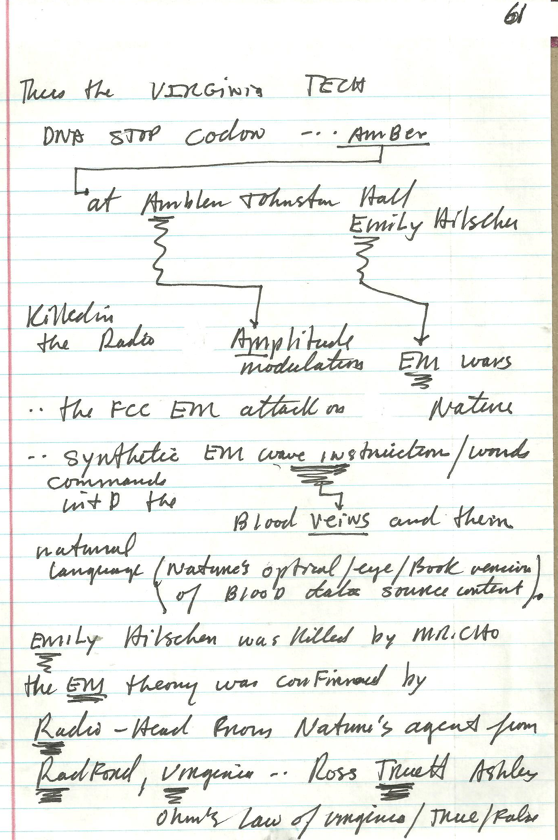 61
Thus the VIRGINIA TECH
DNA STOP Codon --- AmBer
at Ambler Johnston Hall
Emily Hilscher
Killed in
the Radio
Amplitude
modulation
EM wars
Nature
.. the FCC EM attack on
-- synthetic EM wave instruction/words
commands
into the
Blood veins and their
natural
language (Nature's optical/eye/Book version
of Blood data source content).
EMILY Hilscher was killed by MR.CHO
the EM theory was confirmed by
Radio-Head from Nature's agent from
Radford, Virginia .. Ross Truett Ashley
Ohm's Law of Virginia/True/False